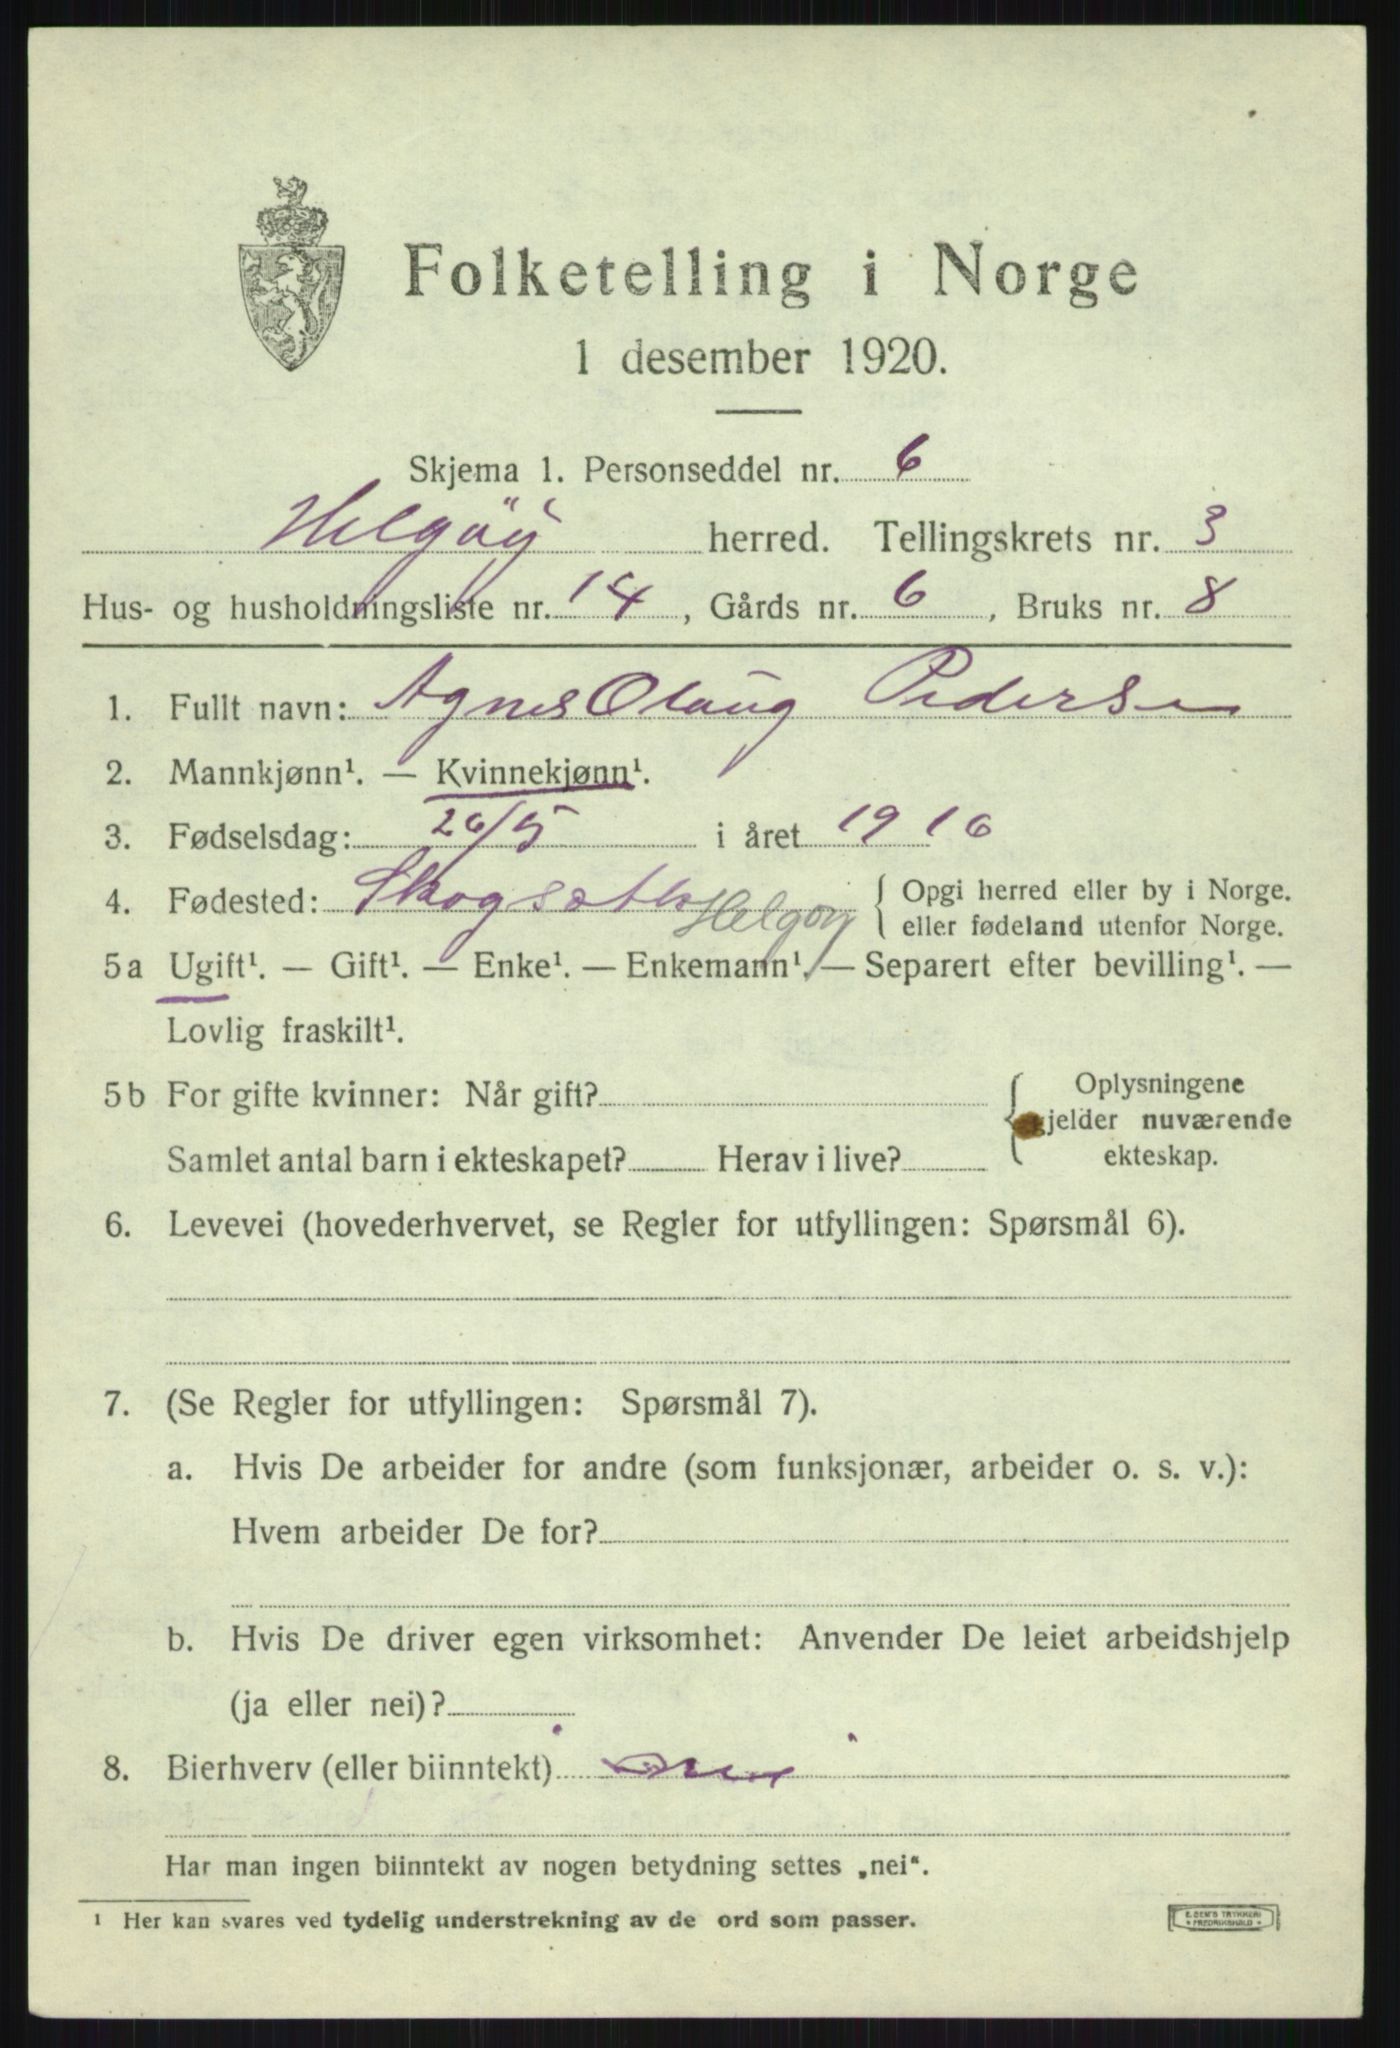 Folketelling i Norge
1 desember 1920.
Skjema 1. Personseddel nr. 6
Helgöy herred. Tellingskrets nr. 3
Hus- og husholdningsliste nr. 14, Gårds nr. 6, Bruks nr. 8
1. Fullt navn: Agnes Olaug Pedersen
2. Mannkjønn¹. — Kvinnekjønn¹.
3. Fødselsdag: 26/5 i året 1916
4. Fødested: Helgøy { Opgi herred eller by i Norge.
eller fødeland utenfor Norge.
5a Ugift¹. — Gift¹. — Enke¹. — Enkemann¹. — Separert efter bevilling¹. —
Lovlig fraskilt¹.
5b For gifte kvinner: Når gift? { Oplysningene
gjelder nuværende
Samlet antal barn i ekteskapet? Herav i live? ekteskap.
6. Levevei (hovederhvervet, se Regler for utfyllingen: Spørsmål 6).
7. (Se Regler for utfyllingen: Spørsmål 7).
a. Hvis De arbeider for andre (som funksjonær, arbeider o. s. v.):
Hvem arbeider De for?
b. Hvis De driver egen virksomhet: Anvender De leiet arbeidshjelp
(ja eller nei)?
8. Bierhverv (eller biinntekt) nei
Har man ingen biinntekt av nogen betydning settes „nei".
¹ Her kan svares ved tydelig understrekning av de ord som passer.
E. SEM'S TRYKKERI
FREDRIKSHALD